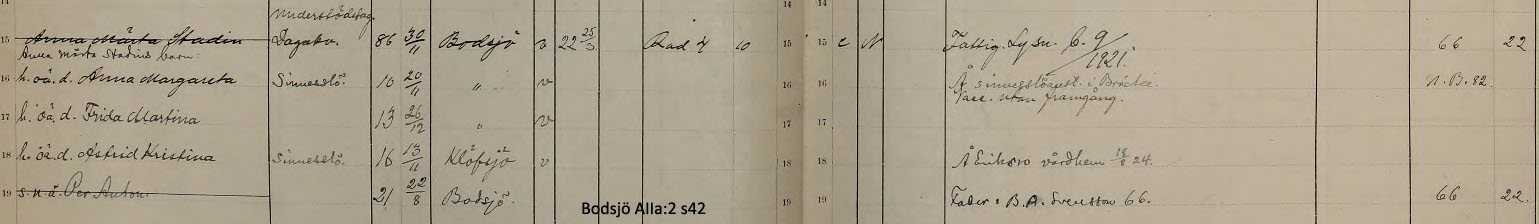 14 14 14
Understödstag.
15 Anna Märta Stadin Dagakv. 86 30/11 Bodsjö v 22 25/3 Rad 4 10 15 15 c N Fattig. Lysn. 6. 9/ 1921. 66 22
Anna Märta Stadins barn:
16 h. oä. d. Anna Margareta Sinnesslö. 10 20/11 " v 16 16 Å sinnesslöanst. i Bräcke. n. B. 82.
Vacc. utan framgång.
17 h. oä. d. Frida Martina 13 26/12 " v 17 17
18 h. oä. d. Astrid Kristina Sinnesslö. 16 13/11 Klöfsjö v 18 18 Å Eriksro vårdhem 18/8 24.
19 s. u. ä. Per Anton. 21 22/8 Bodsjö. 19 19 Fader: B. A. Svensson 66. 66 22.
Bodsjö Alla:2 s42